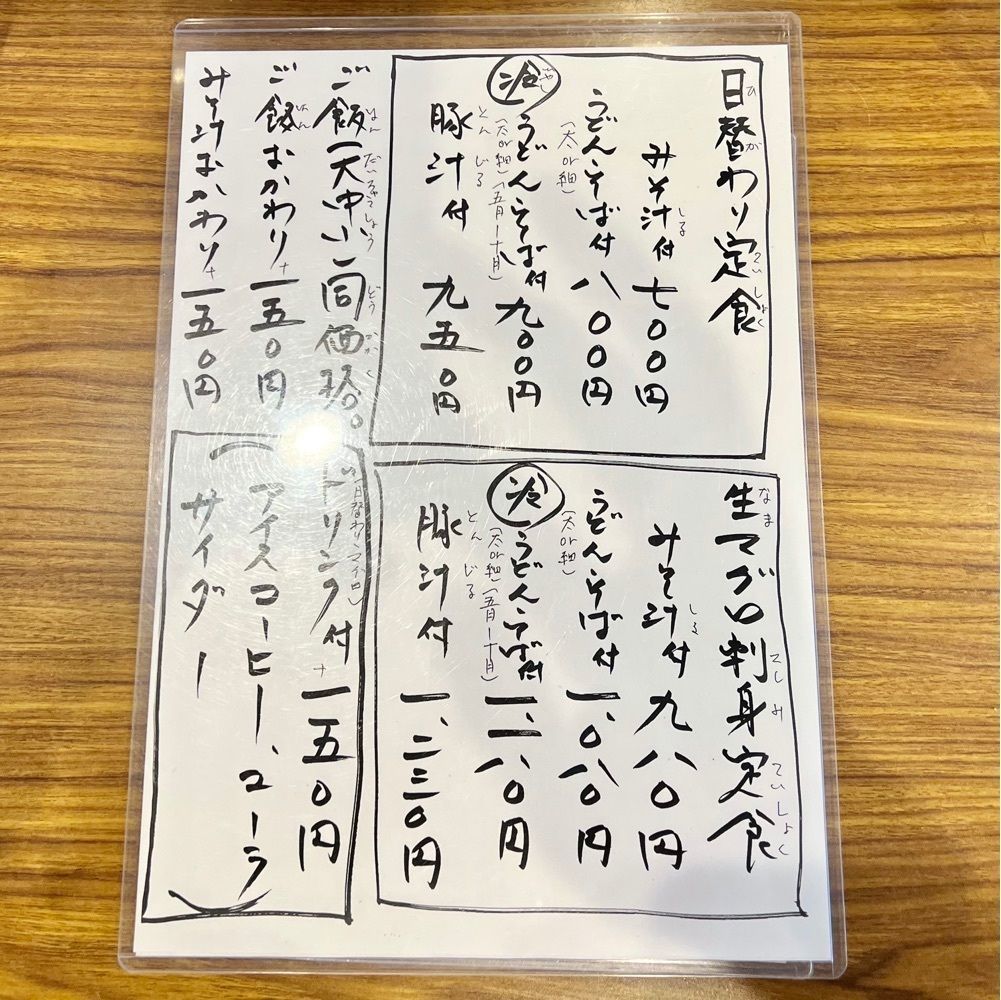 日替わり定食
みそ汁付 七〇〇円
うどん、そば付 八〇〇円
(太or細)
冷 うどん、そば付 九〇〇円
(太or細)(五月〜十月)
豚汁付 九五〇円
生マグロ刺身定食
みそ汁付 九八〇円
うどん、そば付 一、〇八〇円
(太or細)
冷 うどん、そば付 一、一八〇円
(太or細)(五月〜十月)
豚汁付 一、二三〇円
ご飯(大中小)同価格。
ご飯おかわり+一五〇円
みそ汁おかわり+一五〇円
ドリンク付+一五〇円
アイスコーヒー、コーラ
サイダー